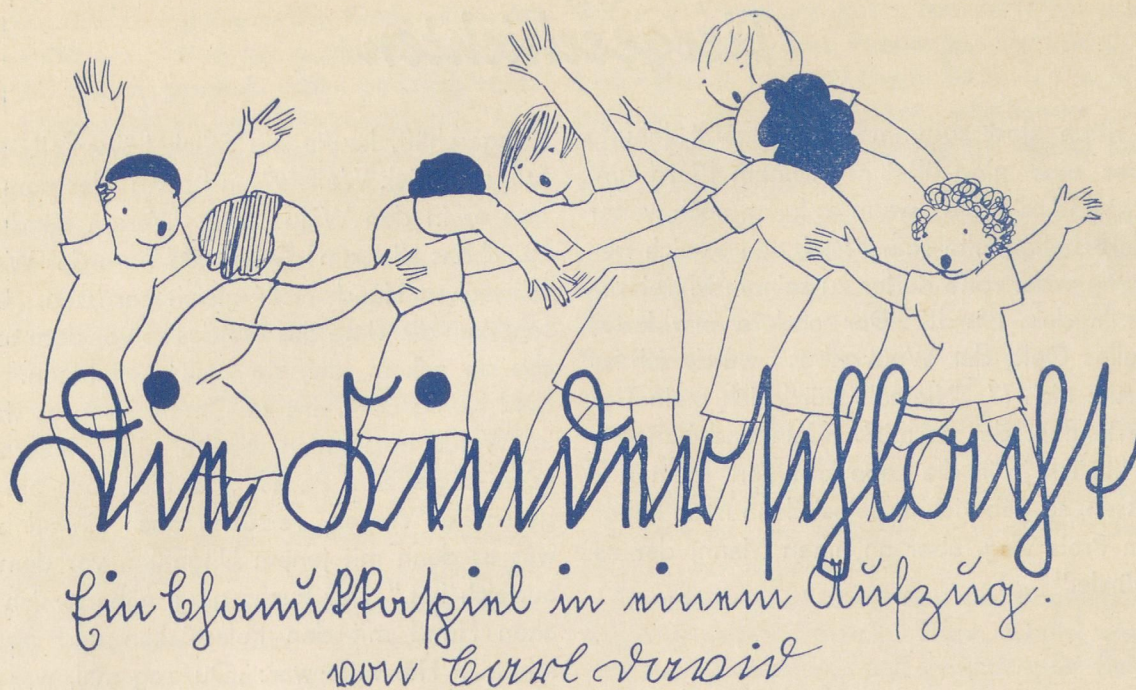 Die Kinderschlacht
Ein Chanukkaspiel in einem Aufzug.
von Carl David